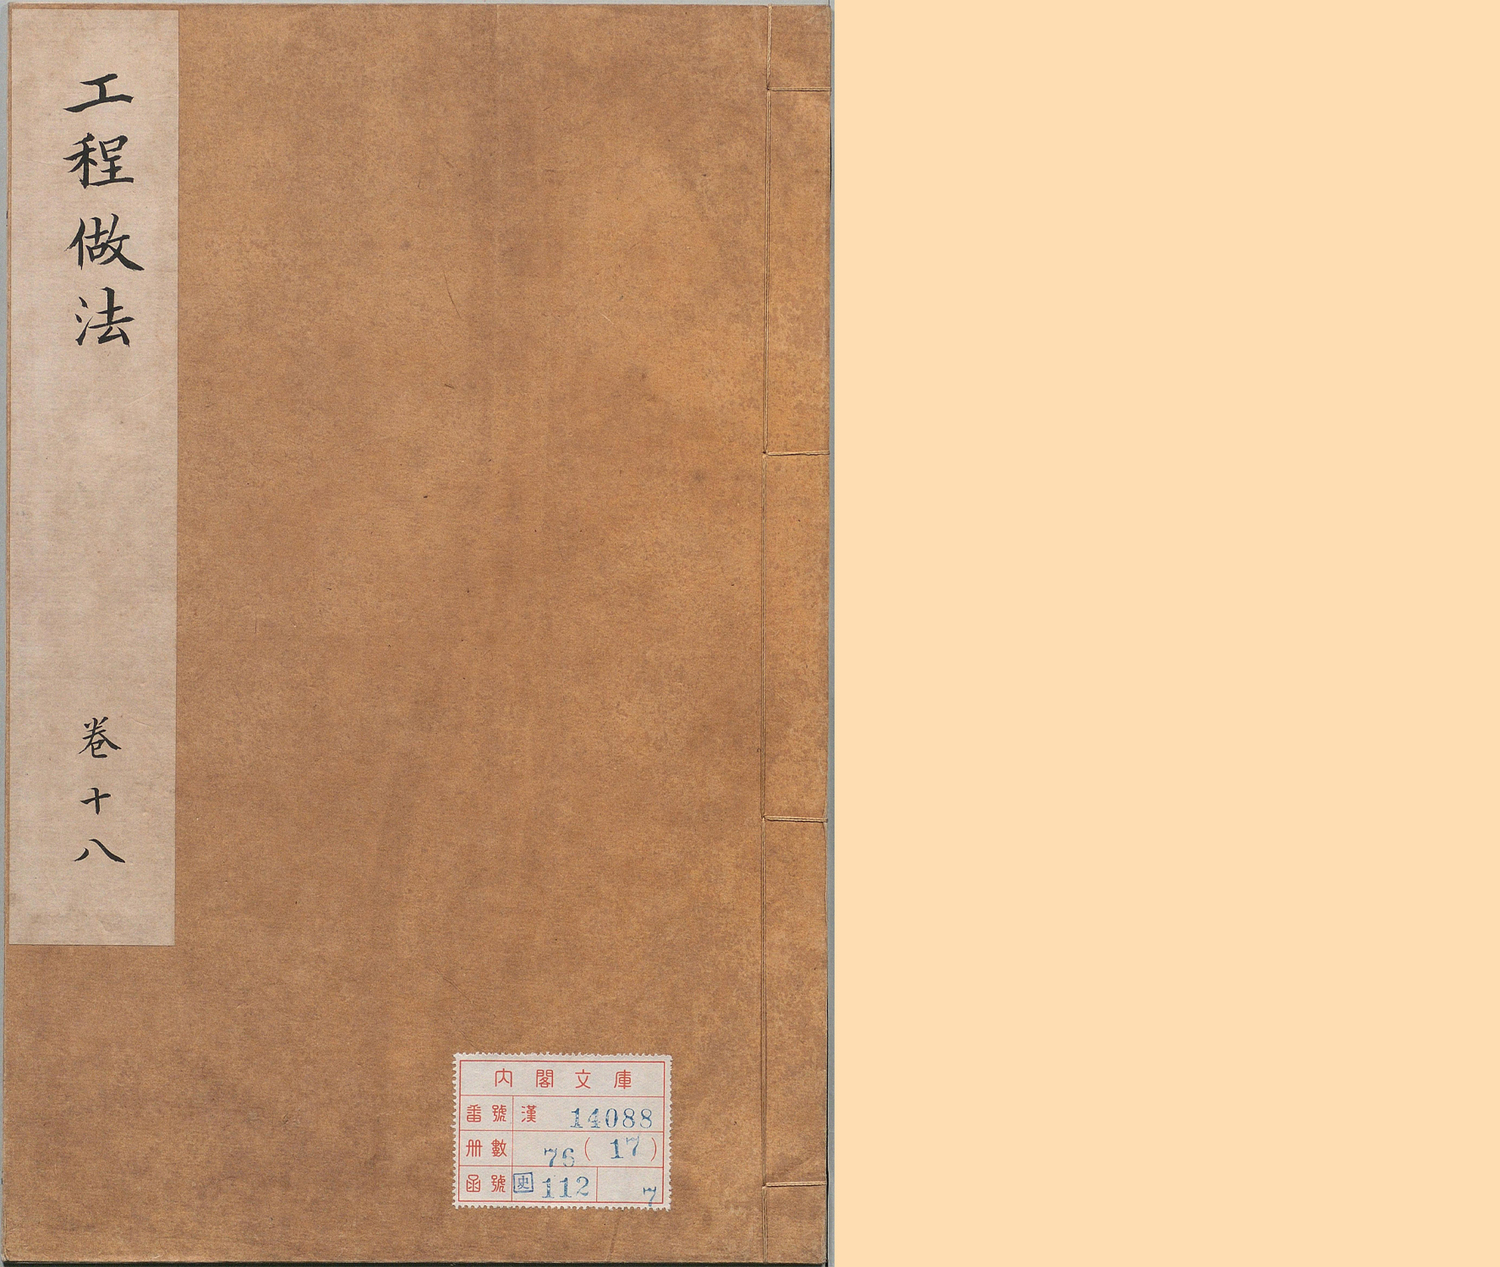 工程做法
卷十八
内閣文庫
番號 漢 14088
册數 76(17)
函號 史 112 7